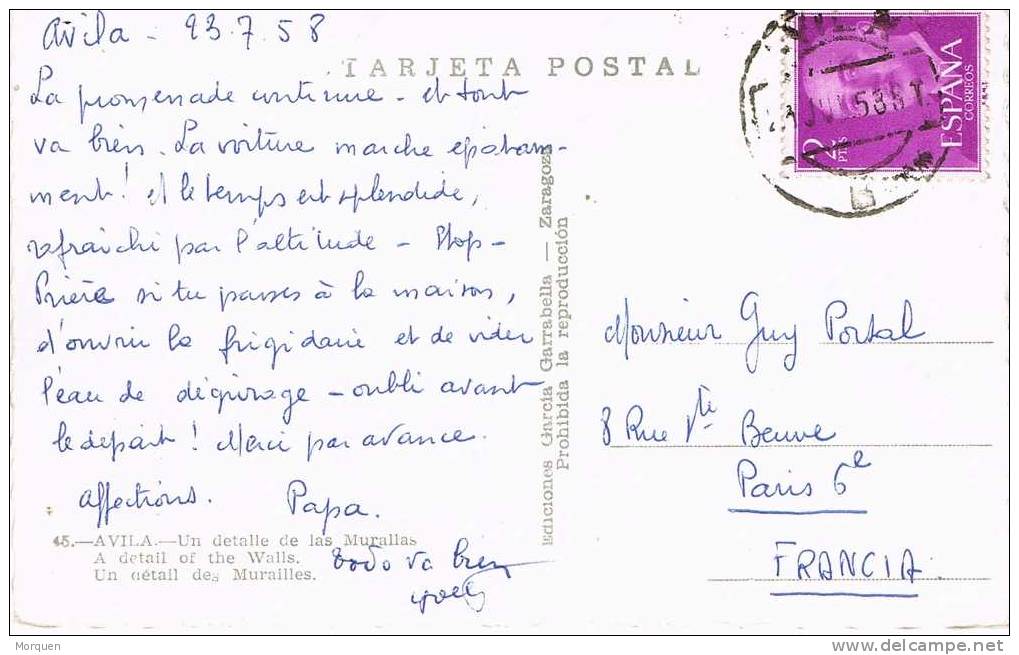 Avila - 23.7.58
TARJETA POSTAL
La promenade continue - et tout
va bien. La voiture marche épatam-
ment ! et le temps est splendide,
rafraichi par l'altitude - Stop -
Prière si tu passes à la maison,
d'ouvrir le frigidaire et de vider
l'eau de dégivrage - oubli avant
le départ ! Merci par avance.
Affections. Papa.
todo va bien
45.—AVILA.—Un detalle de las Murallas
A detail of the Walls.
Un détail des Murailles.
Ediciones García Garrabella — Zaragoza
Prohibida la reproducción
2 PTAS
ESPAÑA
CORREOS
Monsieur Guy Portal
8 Rue Ste Beuve
Paris 6e
FRANCIA
Morquen
www.delcampe.net